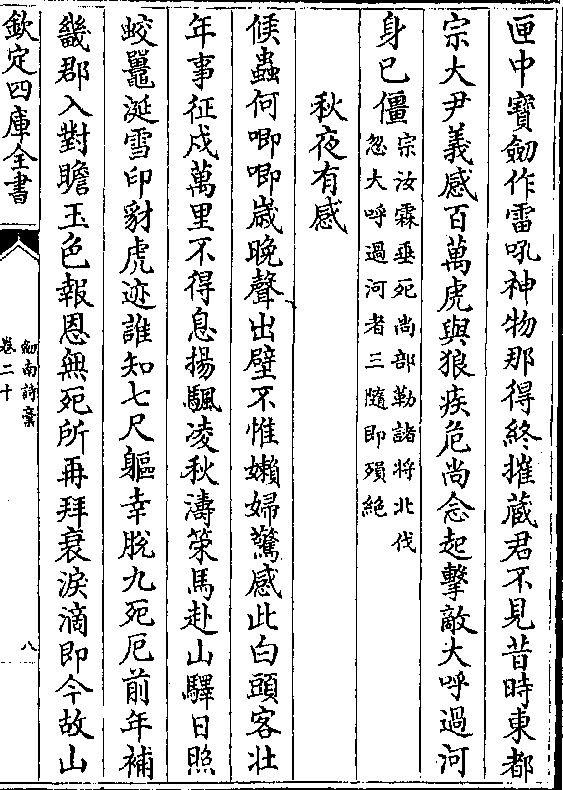 匣中寶劒作雷吼神物那得終摧藏君不見昔時東都
宗大尹義感百萬虎與狼疾危尚念起擊敵大呼過河
身已僵宗汝霖垂死尚部勒諸將北伐
忽大呼過河者三隨即殞絶
秋夜有感
候蟲何唧唧歲晚聲出壁不惟嬾婦驚感此白頭客壯
年事征戍萬里不得息揚颿凌秋濤策馬赴山驛日照
蛟鼉涎雪印豺虎迹誰知七尺軀幸脫九死厄前年補
畿郡入對瞻玉色報恩無死所再拜衰淚滴即今故山
欽定四庫全書
劒南詩稾
卷二十
八